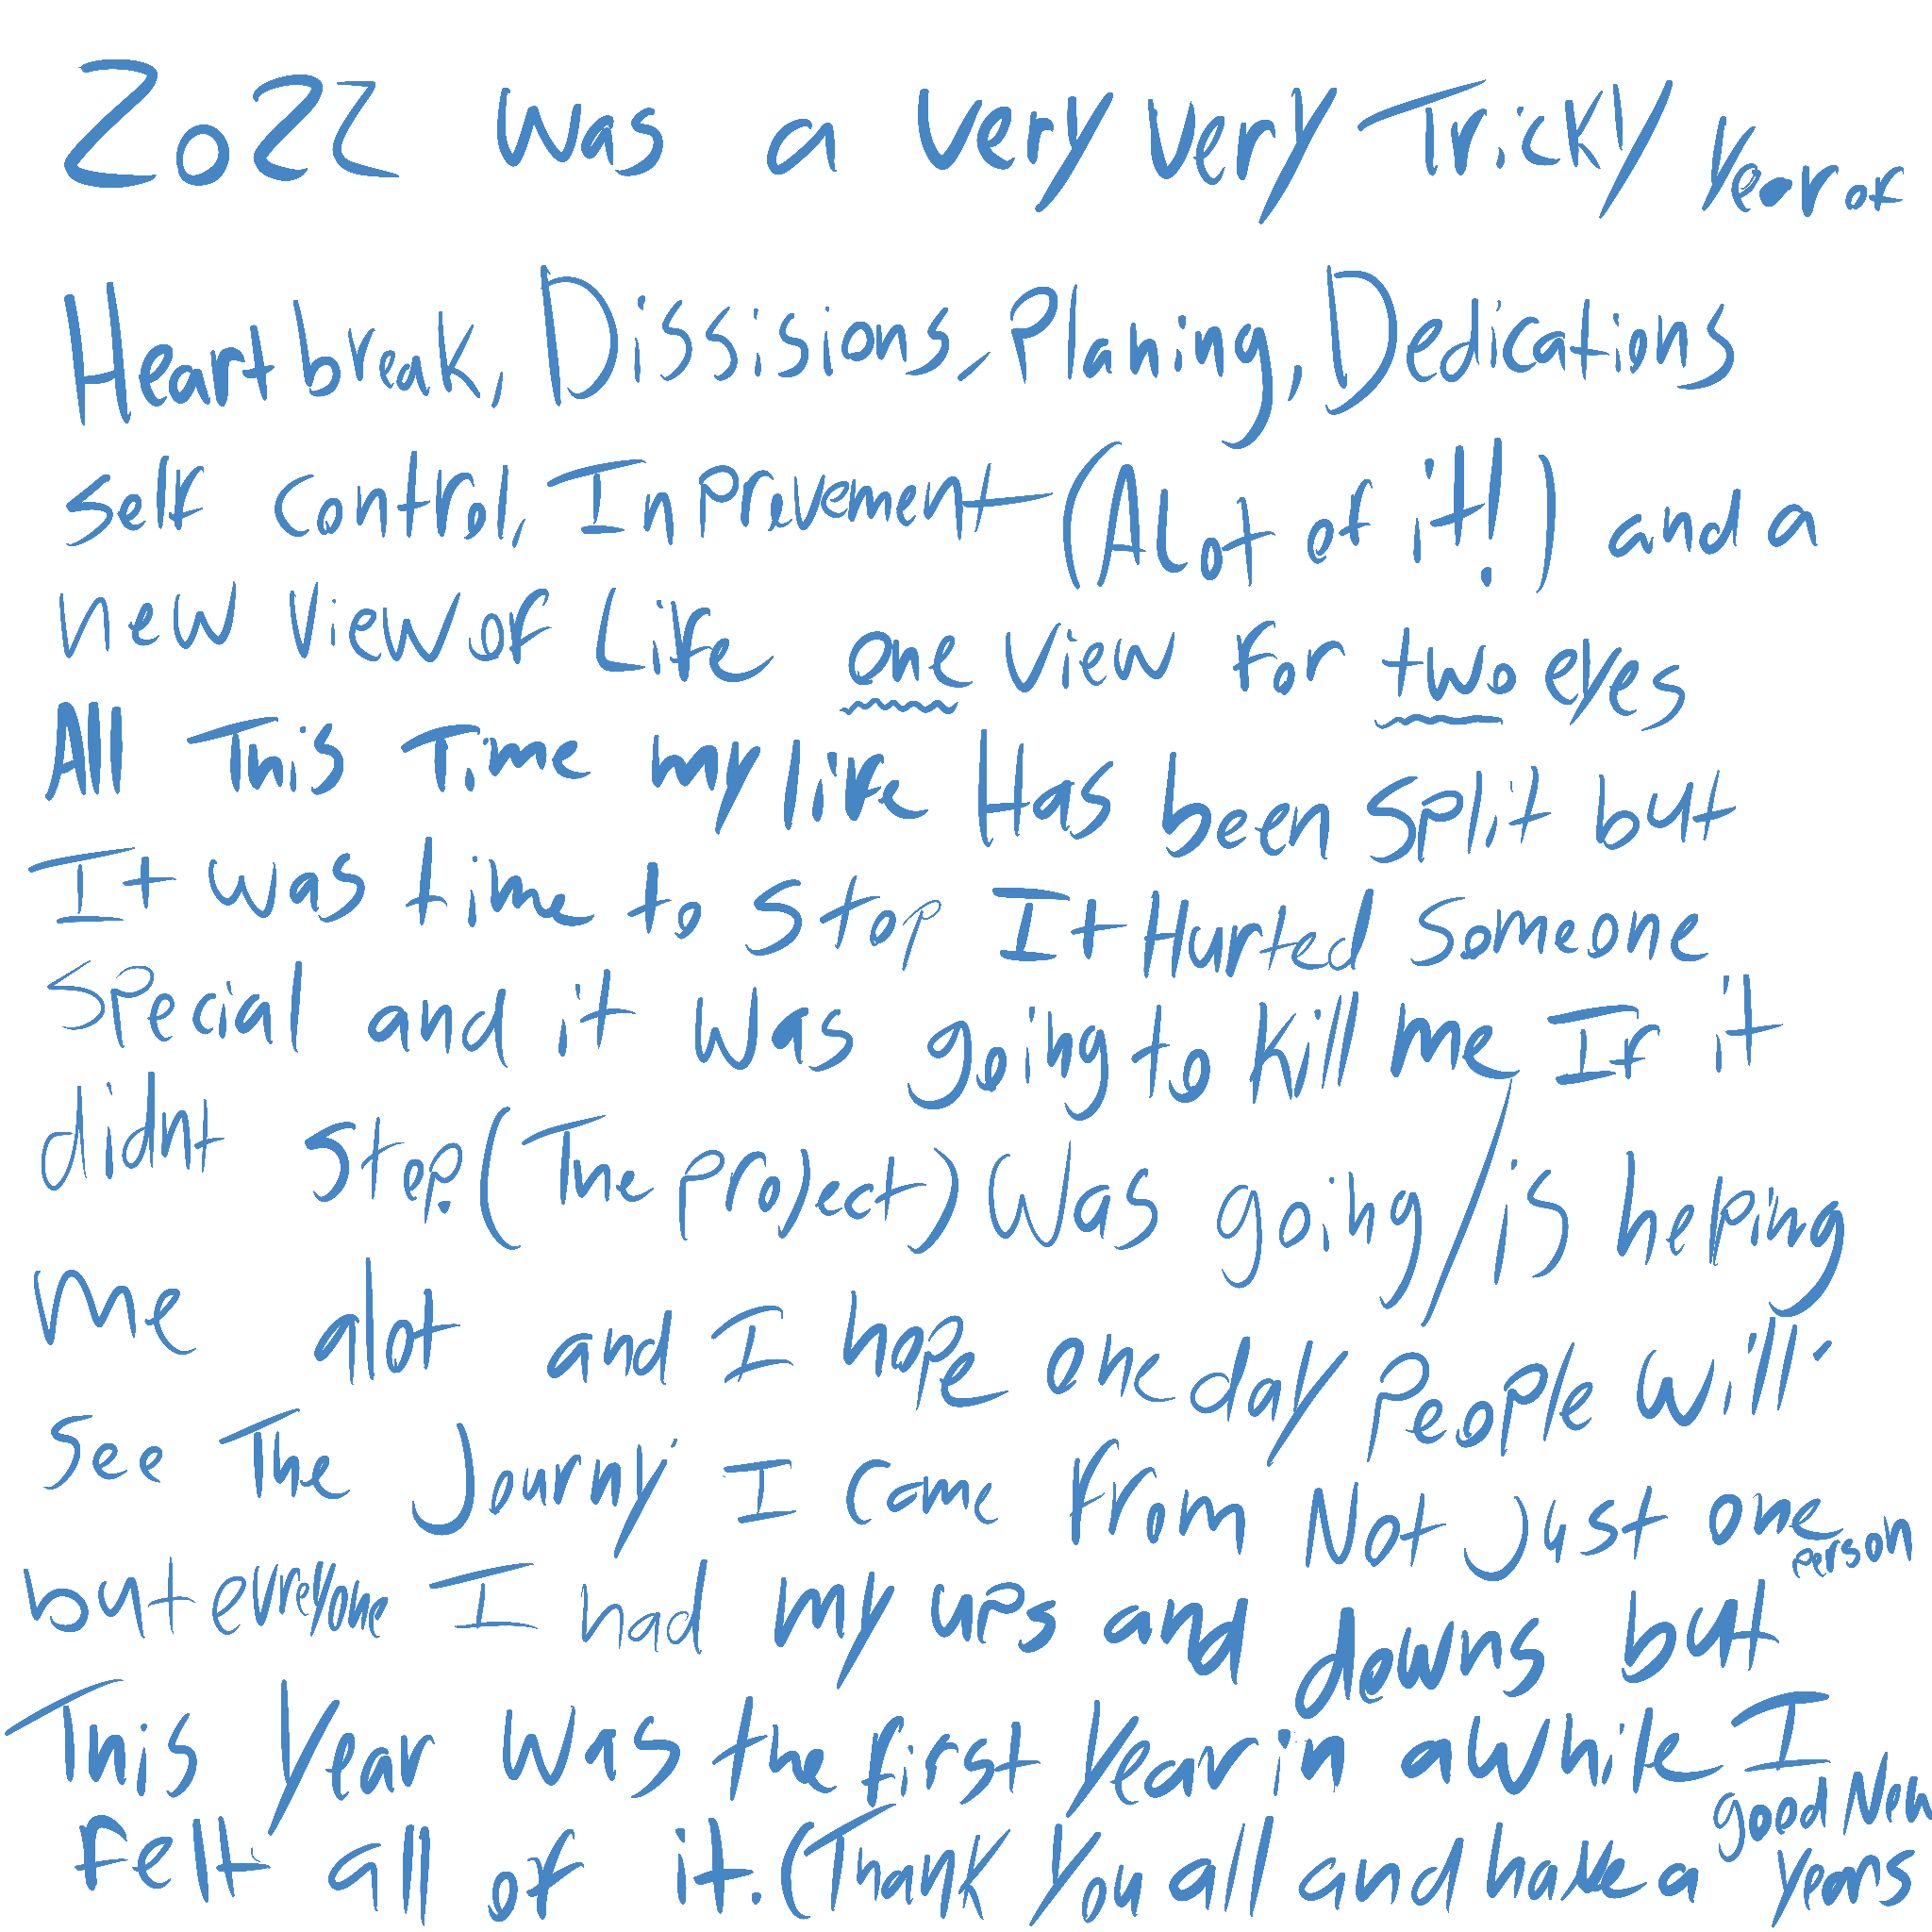 2022 was a very very Tricky Year of
Heartbreak, Dississions, Planing, Dedications
Self control, Inprovement (A Lot of it!) and a
new view of Life one view for two eyes
All This Time my life Has been Split but
It was time to Stop It Hurted Someone
Special and it was going to kill me If it
didnt Stop. (The project) Was going/is helping
me alot and I hope one day People will
See The Journy I came from Not Just one person
but evreyone I had my ups and downs but
This Year was the first Year in awhile I
Felt all of it. (Thank You all and have a good New Years